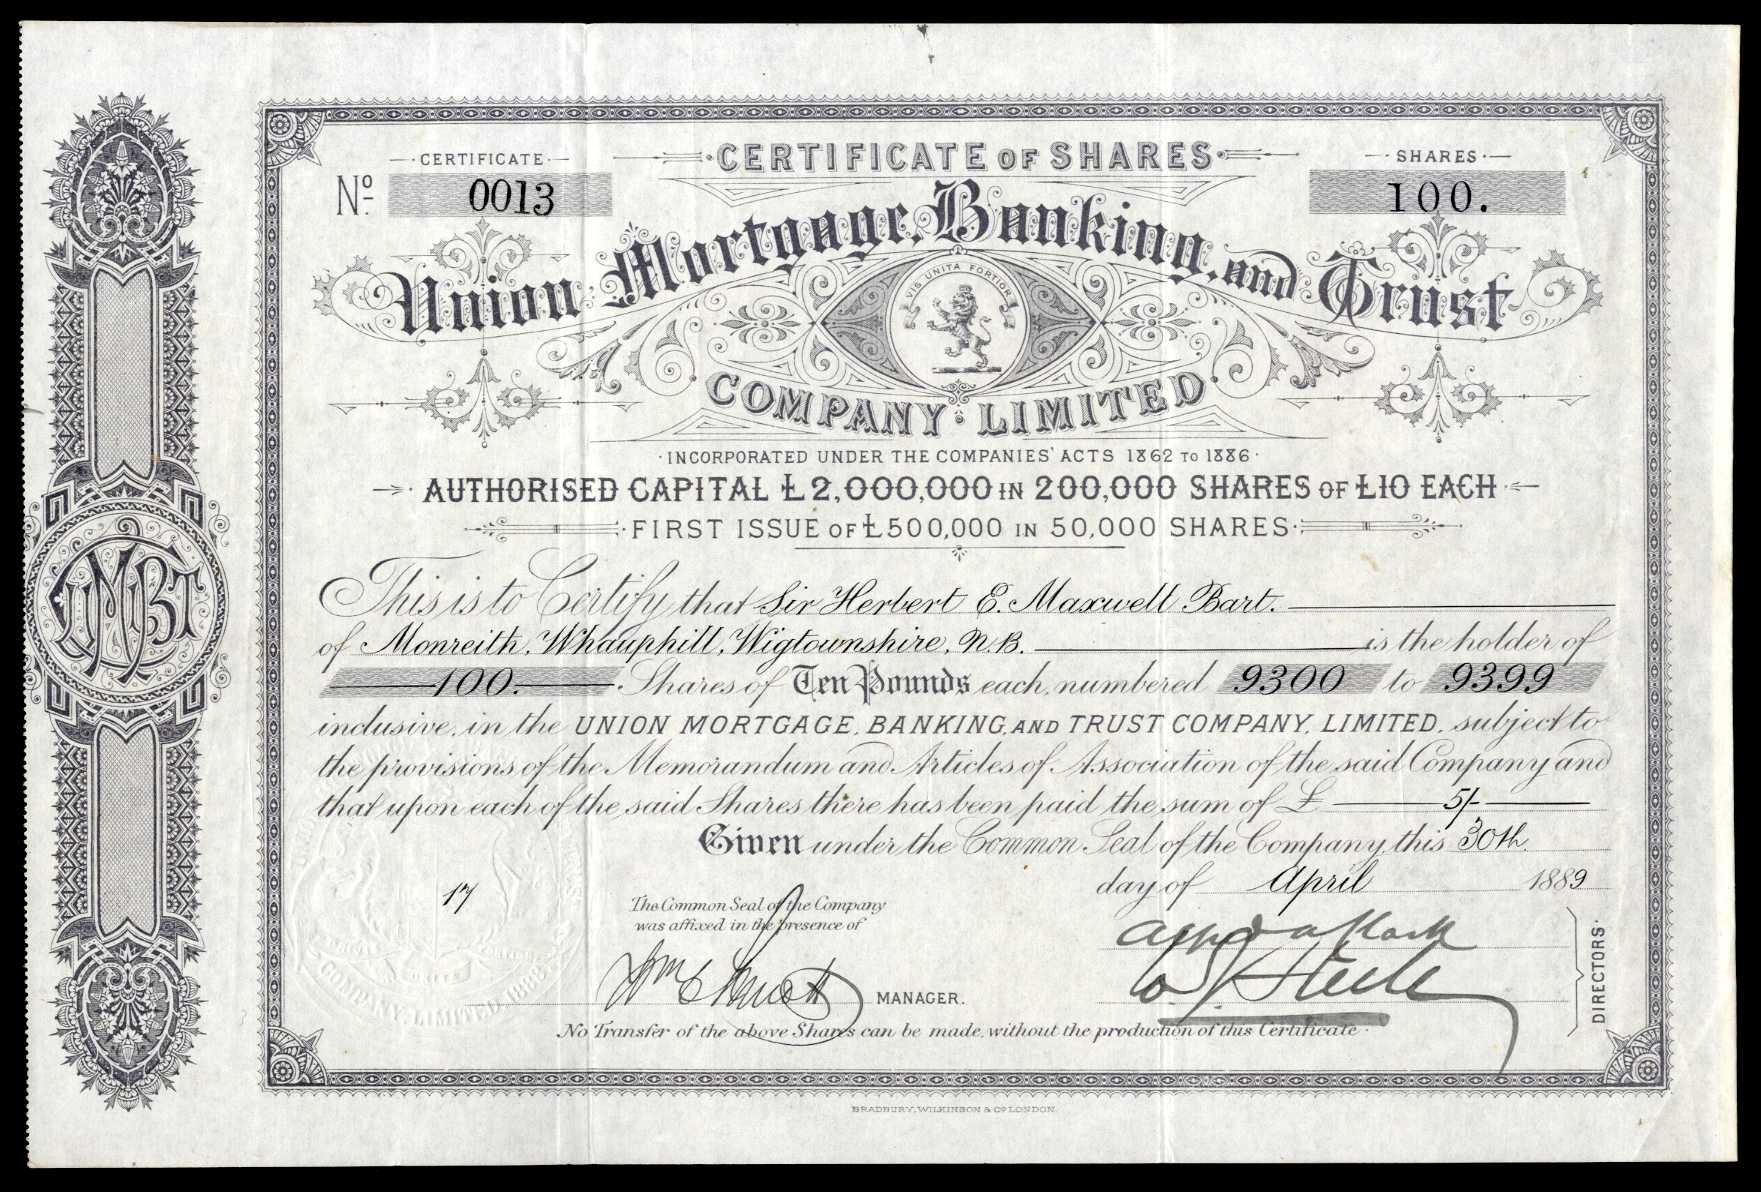 CERTIFICATE
No 0013
CERTIFICATE OF SHARES
SHARES
100.
Union Mortgage, Banking, and Trust
VIS UNITA FORTIOR
COMPANY LIMITED
INCORPORATED UNDER THE COMPANIES' ACTS 1862 TO 1886
AUTHORISED CAPITAL £2,000,000 IN 200,000 SHARES OF £10 EACH
FIRST ISSUE OF £500,000 IN 50,000 SHARES
UMBT
This is to Certify that Sir Herbert E. Maxwell Bart.
of Monreith, Whauphill, Wigtownshire, N.B. is the holder of
100. Shares of Ten Pounds each, numbered 9300 to 9399
inclusive, in the UNION MORTGAGE, BANKING, AND TRUST COMPANY, LIMITED, subject to
the provisions of the Memorandum and Articles of Association of the said Company and
that upon each of the said Shares there has been paid the sum of £ 5/-
Given under the Common Seal of the Company, this 30th
day of April 1889
17
The Common Seal of the Company
was affixed in the presence of
MANAGER.
DIRECTORS.
COMPANY, LIMITED, 1888
No Transfer of the above Shares can be made, without the production of this Certificate
BRADBURY, WILKINSON & Co LONDON.